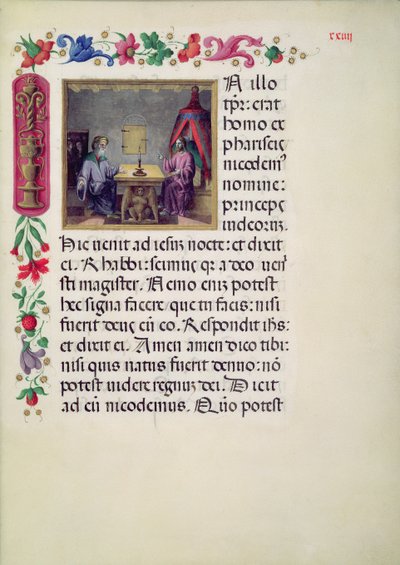 xxiij
N illo
tpr: erat
homo ex
phariseis
nicodem9
nomine:
princeps
iudeorum.
Hic uenit ad iesum nocte: et dixit
ei. Rhabbi: scimus qr a deo ueni
sti magister. Nemo enim potest
hec signa facere, que tu facis: nisi
fuerit deus cu eo. Respondit ihs:
et dixit ei. Amen amen dico tibi:
nisi quis natus fuerit denuo: nō
potest uidere regnum dei. Dicit
ad eū nicodemus. Quō potest